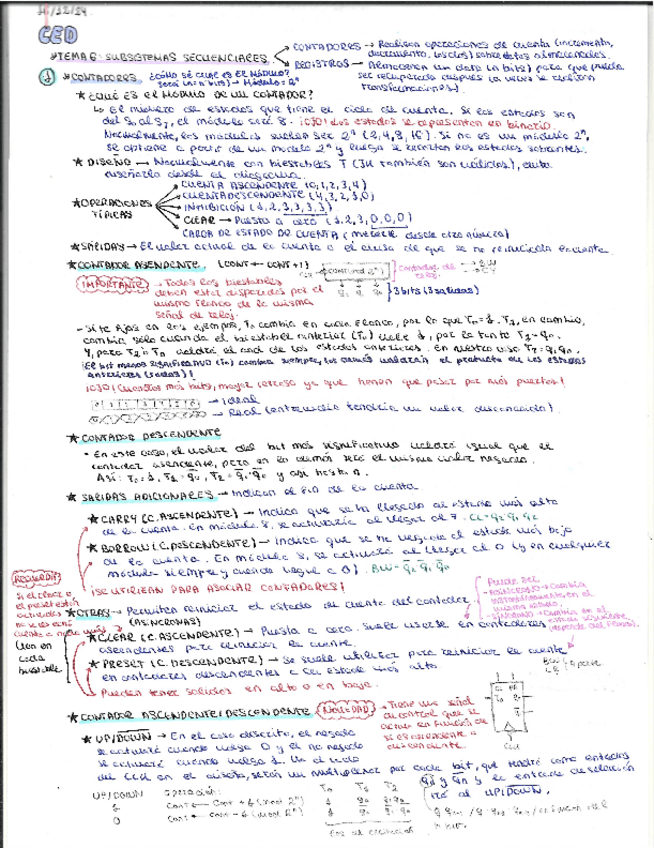 16/12/24
CED
★TEMA 6: SUBSISTEMAS SECUENCIALES
CONTADORES → Realizan operaciones de cuenta (incremento, decremento, ...) sobre datos almacenados.
REGISTROS → Almacenan un dato (n bits) para que pueda ser recuperado después (a veces se realizan transformaciones).
① ★CONTADORES ¿CÓMO SÉ CUAL ES EL MÓDULO?
Módulo = 2ⁿ
★ ¿QUÉ ES EL MÓDULO DE UN CONTADOR?
↳ El número de estados que tiene el ciclo de cuenta. Si los estados son
del S₀ al S₇, el módulo será 8. ¡OJO! Los estados se representan en binario.
Normalmente, los módulos suelen ser 2ⁿ (2,4,8,16). Si no es un módulo 2ⁿ,
se obtiene a partir de un modulo 2ⁿ y luego se recortan los estados sobrantes.
★ DISEÑO → Normalmente con biestables T (JK también son válidos),
diseñarlo desde el diagrama.
★OPERACIONES TÍPICAS
CUENTA ASCENDENTE (0,1,2,3,4)
CUENTA DESCENDENTE (4,3,2,1,0)
INHIBICIÓN (1,2,3,3,3,3)
CLEAR → Puesta a cero (1,2,3,0,0,0)
CARGA DE ESTADO DE CUENTA (desde otro número)
★SALIDAS → El valor actual de la cuenta o el aviso de que se ha reiniciado la cuenta.
★CONTADOR ASCENDENTE (CONT ← CONT + 1)
q₂ q₁ q₀ } 3 bits (3 salidas)
IMPORTANTE → Todos los biestables
deben estar disparados por el
mismo flanco de la misma
señal de reloj.
- Si te fijas en los ejemplos, T₀ cambia en cada flanco, por lo que T₀ = 1. T₁, en cambio,
cambia sólo cuando el biestable anterior (T₀) vale 1, por lo tanto T₁ = q₀.
Y, para T₂ valdrá el and de los estados anteriores. En nuestro caso T₂ = q₁q₀.
¡El bit menos significativo (T₀) cambia siempre, los demás valdrán el producto de los estados
anteriores (salidas)!
¡OJO! Cuantos más bits, mayor retraso ya que tienen que pasar por más puertas!
→ Ideal
→ Real (entremedio tendría un valor desconocido).
★ CONTADOR DESCENDENTE
- En este caso, el valor del bit más significativo valdrá igual que el
contador ascendente, pero en los demás será el mismo valor negado.
Así: T₀ = 1, T₁ = q̄₀, T₂ = q̄₁·q̄₀ y así hasta n.
★ SALIDAS ADICIONALES → Indican el fin de la cuenta
★ CARRY (C. ASCENDENTE) → Indica que se ha llegado al estado más alto
de la cuenta. En módulo 8, se activaría al llegar al 7. Cy = q₂ q₁ q₀
★ BORROW (C. DESCENDENTE) → Indica que se ha llegado al estado más bajo
de la cuenta. En módulo 8, se activará al llegar al 0 (y en cualquier
módulo siempre y cuando llegue a 0). BW = q̄₂ q̄₁ q̄₀
¡SE UTILIZAN PARA ASOCIAR CONTADORES!
RECUERDA
Si el clear o
el preset están
activados
★OTRAS → Permiten reiniciar el estado de cuenta del contador.
(ASÍNCRONAS)
★CLEAR (C. ASCENDENTE) → Puesta a cero. Suele usarse en contadores
ascendentes para reiniciar la cuenta.
★ PRESET (C. DESCENDENTE) → Se suele utilizar para reiniciar la cuenta
en contadores descendentes a su estado más alto.
Pueden tener salidas en alto o en baja.
Puede ser
- ASÍNCRONO → Cambia
instantáneamente en el
mismo estado.
- SÍNCRONO → Cambia en el
estado siguiente
(depende del flanco).
CLK
★CONTADOR ASCENDENTE/DESCENDENTE
NOVEDAD → Tiene una señal
de control que se
activa en función de
si es ascendente o
descendente.
★ UP/DOWN → En el caso descrito, el negado
se activará cuando valga 0 y el no negado
se activará cuando valga 1.
del CLK en el diseño, serán un multiplexor por cada bit, que tendrá como entradas
qn y q̄n y la entrada de selección
irá al UP/DOWN.
UP/DOWN Operación: T₀ T₁ T₂
1 Cont ← Cont + 1 (mod 2ⁿ) 1 q₀ q₁·q₀
0 Cont ← Cont - 1 (mod 2ⁿ) 1 q̄₀ q̄₁·q̄₀